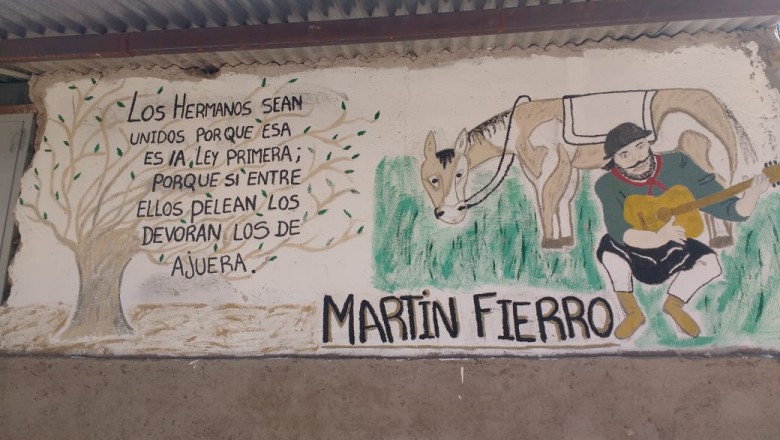 Los Hermanos sean
unidos porque esa
es la ley primera;
porque si entre
ellos pelean los
devoran los de
ajuera.
MARTÍN FIERRO